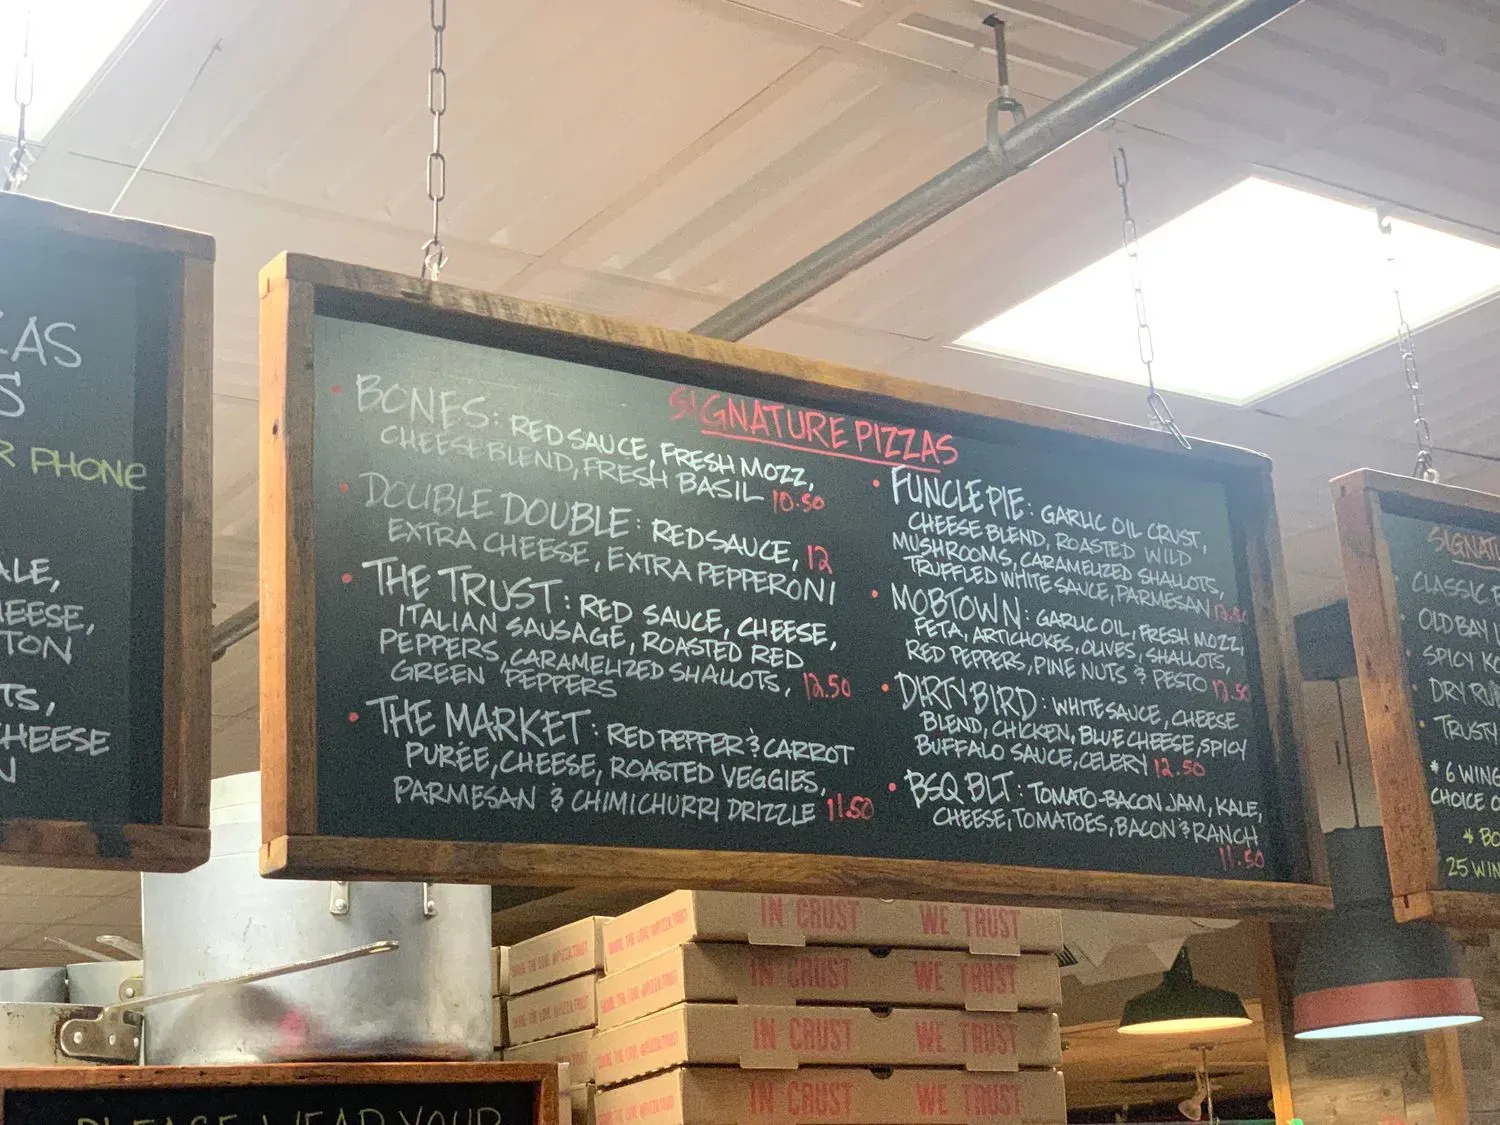 SIGNATURE PIZZAS
• BONES: RED SAUCE, FRESH MOZZ,
CHEESE BLEND, FRESH BASIL 10.50
• DOUBLE DOUBLE: RED SAUCE, 12
EXTRA CHEESE, EXTRA PEPPERONI
• THE TRUST: RED SAUCE, CHEESE,
ITALIAN SAUSAGE, ROASTED RED
PEPPERS, CARAMELIZED SHALLOTS, 12.50
GREEN PEPPERS
• THE MARKET: RED PEPPER & CARROT
PURÉE, CHEESE, ROASTED VEGGIES,
PARMESAN & CHIMICHURRI DRIZZLE 11.50
• FUNCLE PIE: GARLIC OIL CRUST,
CHEESE BLEND, ROASTED WILD
MUSHROOMS, CARAMELIZED SHALLOTS,
TRUFFLED WHITE SAUCE, PARMESAN
• MOBTOWN: GARLIC OIL, FRESH MOZZ,
FETA, ARTICHOKES, OLIVES, SHALLOTS,
RED PEPPERS, PINE NUTS & PESTO 12.50
• DIRTY BIRD: WHITE SAUCE, CHEESE
BLEND, CHICKEN, BLUE CHEESE, SPICY
BUFFALO SAUCE, CELERY 12.50
• BSQ BLT: TOMATO-BACON JAM, KALE,
CHEESE, TOMATOES, BACON & RANCH
11.50
PHONE
CLASSIC
OLD BAY
SPICY
DRY
TRUSTY
* 6 WING
CHOICE
25 WIN
IN CRUST WE TRUST
IN CRUST WE TRUST
IN CRUST WE TRUST
IN CRUST WE TRUST
PLEASE WEAR YOUR